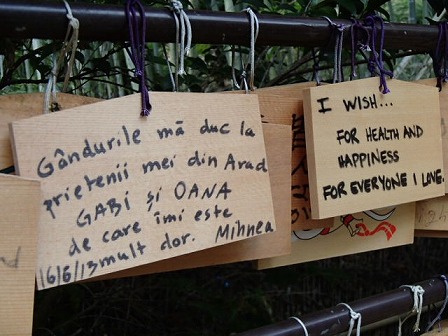 Gândurile mă duc la
prietenii mei din Arad
GABI și OANA
de care îmi este
16/6/13 mult dor. Mihnea
I WISH...
FOR HEALTH AND
HAPPINESS
FOR EVERYONE I LOVE.